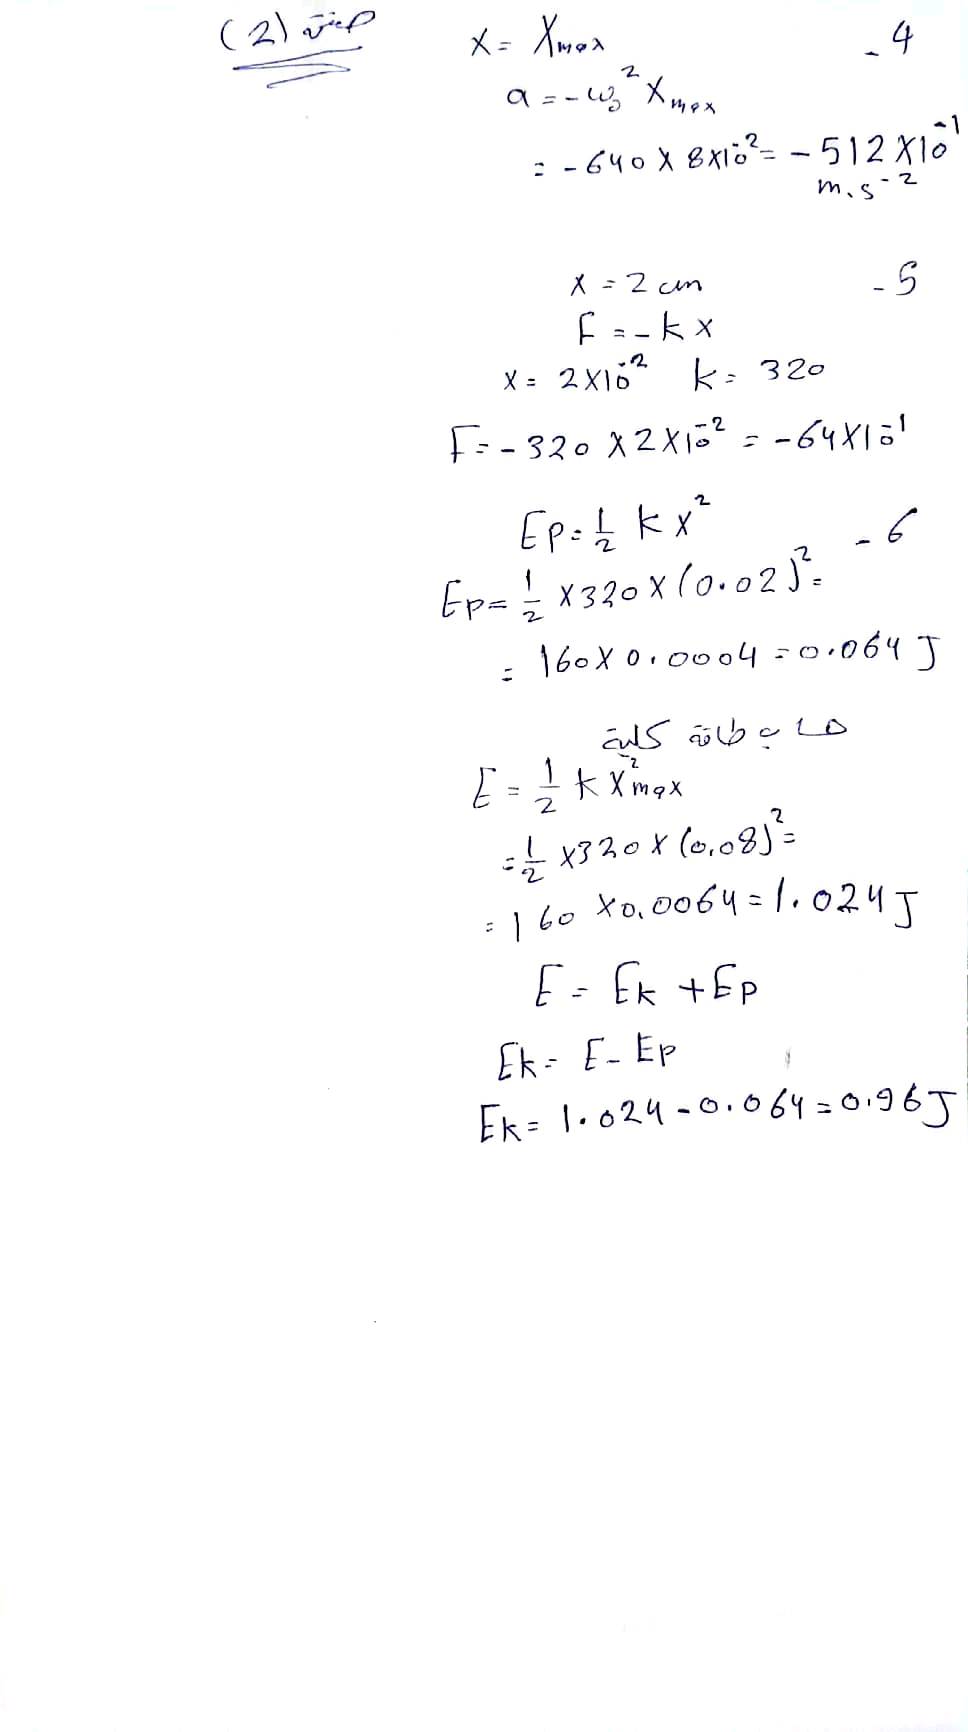 صفحة (2)
4 -
X = Xmax
a = - ω₀² Xmax
= - 640 × 8×10⁻² = - 512 × 10⁻¹
m.s⁻²
5 -
x = 2 cm
F = - k x
x = 2×10⁻² k = 320
F = - 320 × 2×10⁻² = - 64×10⁻¹
6 -
Ep = 1/2 k x²
Ep = 1/2 × 320 × (0.02)² =
= 160 × 0.0004 = 0.064 J
طاقة كلية
E = 1/2 k X²max
= 1/2 × 320 × (0,08)² =
= 160 × 0,0064 = 1.024 J
E = Ek + Ep
Ek = E - Ep
Ek = 1.024 - 0.064 = 0.96 J